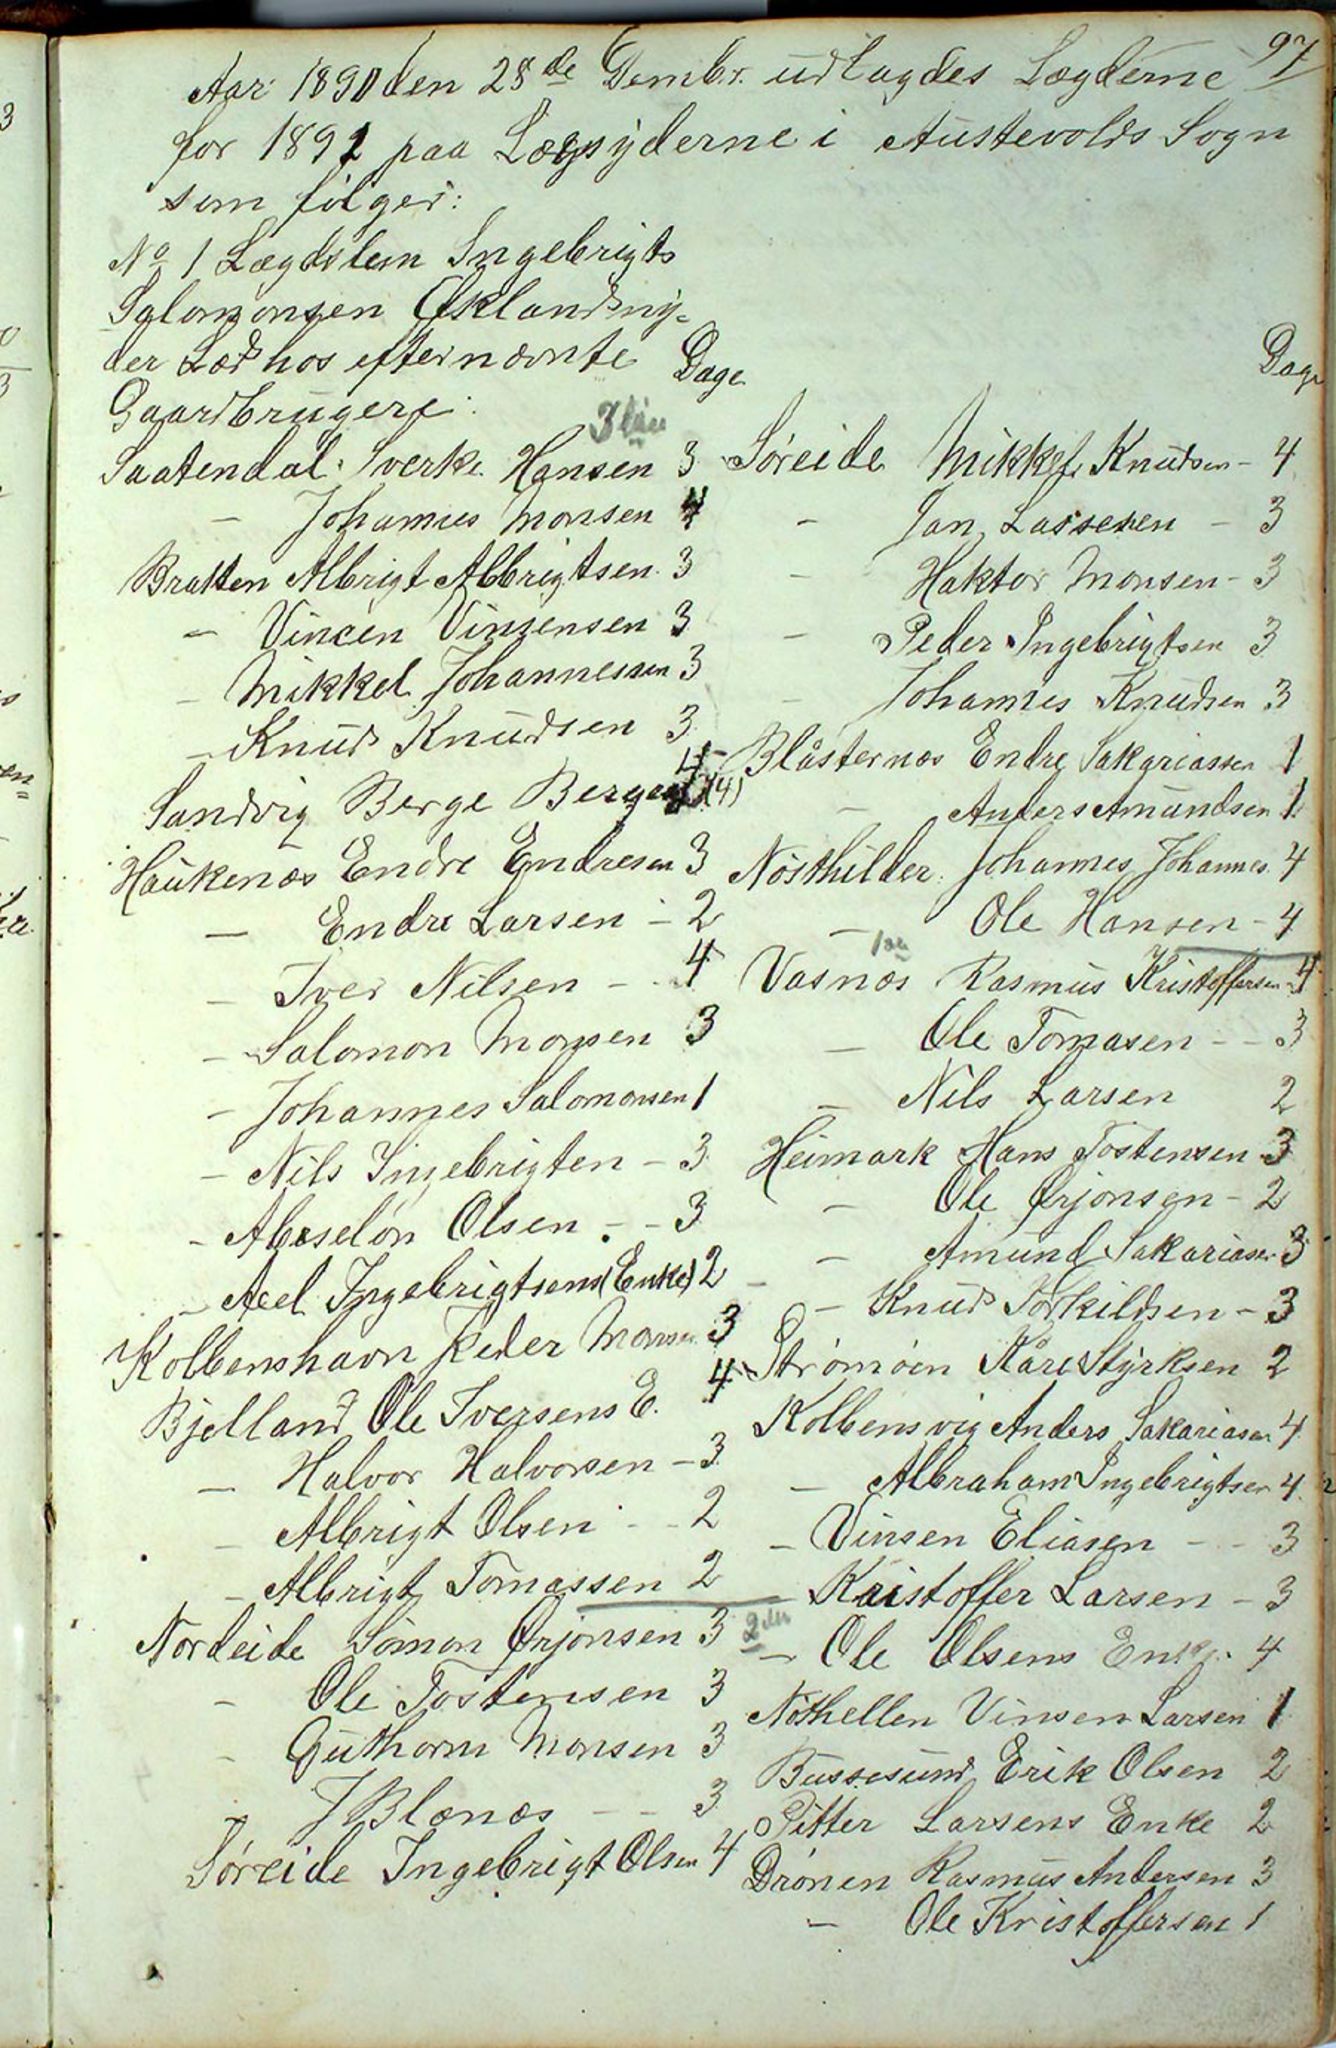 97
Aar 1890 den 28de Dembr. udlagdes Lægderne
for 1891 paa Lægsyderne i Austevolds Sogn
som følger:
No 1 Lægdslem Ingebrigt
Salomonsen Øklandny-
der Læd hos efternævnte Dage
Gaardbrugere:
Saatendal Sverke Hansen 3
— Johannes Monsen 4
Bratten Albrigt Albrigtsen 3
— Vincen Vinsensen 3
— Mikkel Johannessen 3
— Knud Knudsen 3
Sandvig Berge Bergesen 4 (4)
Haukenæs Endre Endresen 3
— Endre Larsen - 2
— Iver Nilsen - 4
— Salomon Monsen 3
— Johannes Salomonsen 1
— Nils Ingebrigten - 3
— Abeselon Olsen - - 3
— Ael Ingebrigtsens (Enke) 2
Kolbenshavn Peder Monsen 3
Bjelland Ole Iversens E. 4
— Halvor Halvorsen - 3
— Albrigt Olsen - - 2
— Albrigt Tomassen 2
Nordeide Simon Ørjansen 3
— Ole Tostensen 3
— Guthorm Monsen 3
J Blænæs - - 3
Søreide Ingebrigt Olsen 4
Dage
Søreide Mikkel Knudsen - 4
— Jan Lassesen - 3
— Haktor Monsen - 3
— Peder Ingebrigtsen 3
— Johannes Knudsen 3
Blåsternæs Endre Sakariassen 1
— Anders Amundsen 1
Nøsthilder Johannes Johannes. 4
— Ole Hansen - 4
Vasnæs Rasmus Kristoffersen - 4
— Ole Tomasen - - 3
— Nils Larsen 2
Heimark Hans Tostensen - 3
— Ole Ørjonsen - 2
— Amund Sakariasen 3
— Knud Torkildsen - 3
Strømøen Kåre Styrksen 2
Kolbensvig Anders Sakariasen 4
— Albraham Ingebrigtsen 4
— Vinsen Eliasen - - 3
— Kristoffer Larsen - 3
2den
— Ole Olsens Enke. 4
Nøthellen Vinsen Larsen 1
Bussesund Erik Olsen 2
Pitter Larsens Enke 2
Drønen Rasmus Andersen 3
— Ole Kristoffersen 1